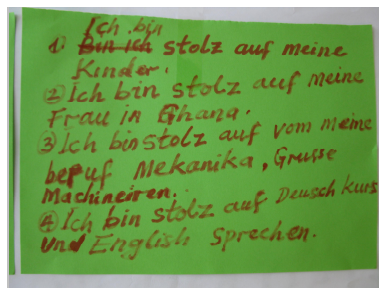 Ich bin
① Bin ich stolz auf meine
Kinder.
② Ich bin stolz auf meine
Frau in Ghana.
③ Ich bin stolz auf vom meine
beruf Mekanika, Grusse
Machineiren.
④ Ich bin stolz auf Deusch kurs
und English sprechen.